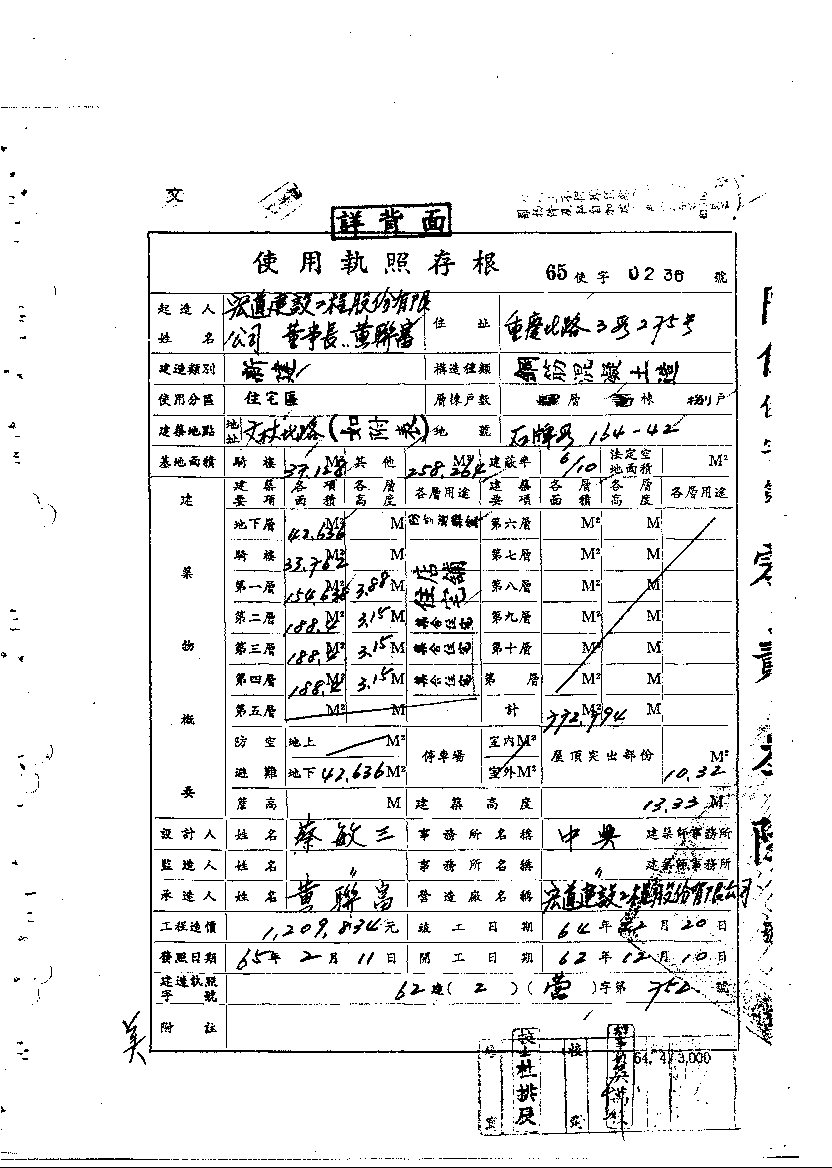 文
詳背面
使用執照存根 65使字0236號
起造人姓名 宏道建設工程股份有限公司 董事長 黄聯富 住址 重慶北路3段275号
建造類別 新建 構造種類 鋼筋混凝土造
使用分區 住宅區 層棟戶數 層 棟 戶
建築地點 地址 文林北路(如附表) 地號 石牌段 164-42
基地面積 騎樓 37.128 M² 其他 258.264 M² 建蔽率 6/10 法定空地面積 M²
建築物概要
建築要項 各項面積 各層高度 各層用途 建築要項 各層面積 各層高度 各層用途
地下層 42.636 M² M 第六層 M² M
騎樓 33.762 M² M 第七層 M² M
第一層 M² 3.88 M 店舖住宅 第八層 M² M
第二層 188.4 M² 3.15 M 第九層 M² M
第三層 188.4 M² 3.15 M 集合住宅 第十層 M² M
第四層 188.4 M² 3.15 M 集合住宅 第 層 M² M
第五層 M² M 計 M² M
防空避難 地上 M² 停車場 室內 M² 屋頂突出部份 M²
地下 42.636 M² 室外 M² 10.32
簷高 M 建築高度 13.33 M
設計人 姓名 蔡敏三 事務所名稱 中興 建築師事務所
監造人 姓名 〃 事務所名稱 〃 建築師事務所
承造人 姓名 黄聯富 營造廠名稱 宏道建設工程股份有限公司
工程造價 1,209,834元 竣工日期 64年12月20日
發照日期 65年2月11日 開工日期 62年12月10日
建造執照字號 62建(2)(營)字第752號
附註
美
64. 4/3,000